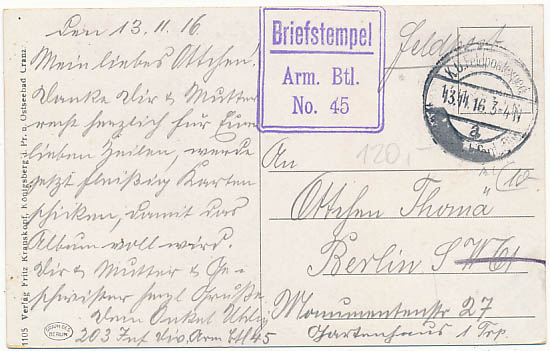 Den 13.11.16.
Mein liebes Ottchen!
Danke Dir & Mutter
recht herzlich für Eure
lieben Zeilen, werde
jetzt fleißig Karten
schicken, damit das
Album voll wird.
Dir & Mutter & Ge-
schwister herzl. Grüße
Dein Onkel
203 Inf Div. Arm Btl 45
Briefstempel
Arm. Btl.
No. 45
Feldpost
13.11.16. 3-4N
a
120,-
An
Ottchen Thoma
Berlin SW
Monumentenstr 27
Gartenhaus 1 Trp.
1105 Verlag Fritz Krauskopf, Königsberg i. Pr. u. Ostseebad Cranz